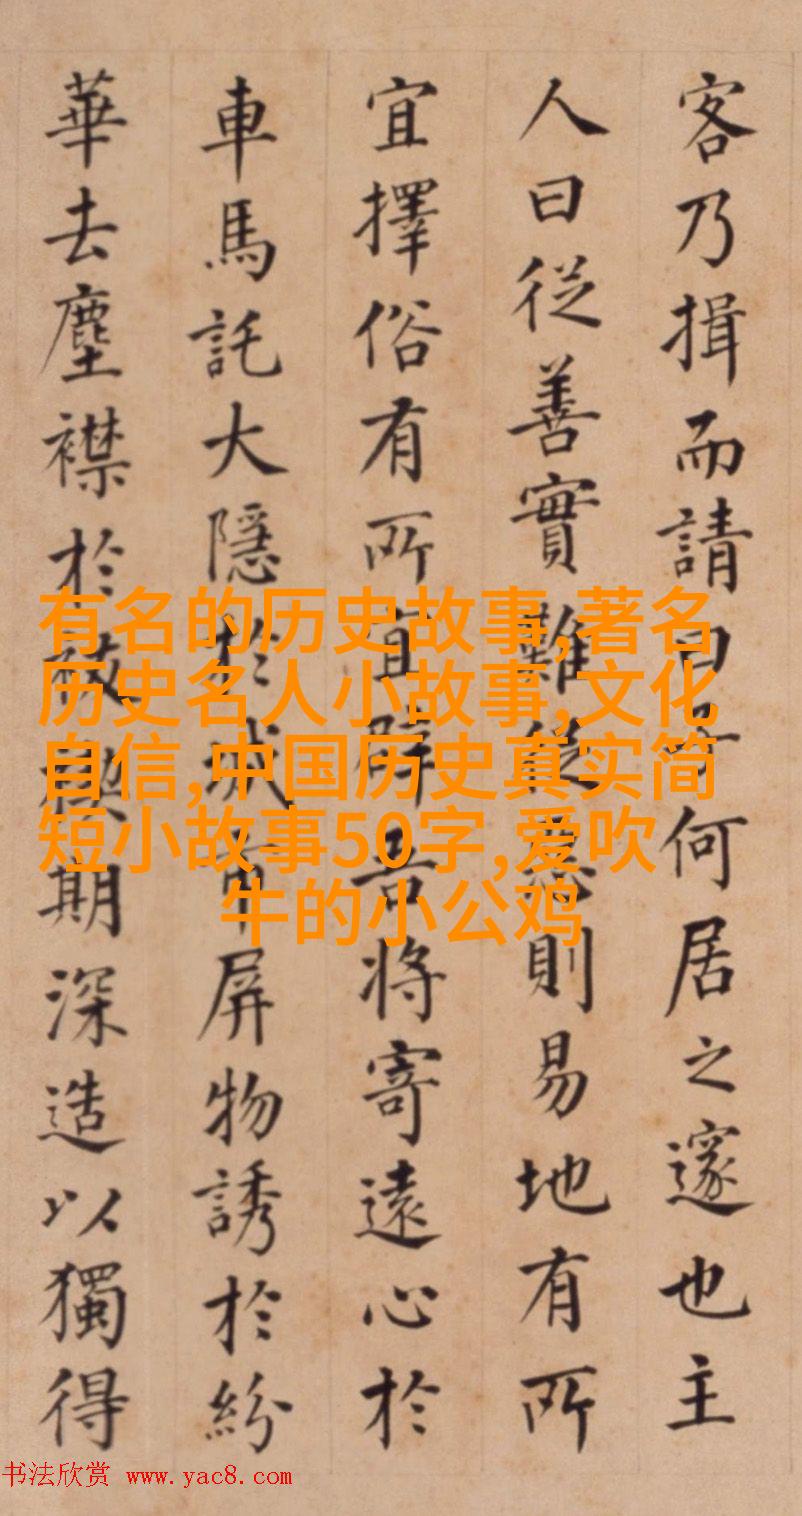 客乃揖而請曰子何居之邃也主
人曰從善實難從惡則易地有所
宜擇俗有所宜辟吾將寄遠心於
車馬託大隱於城市屏物誘於紛
華去塵襟於期深造以獨得
有名的历史故事,著名
历史名人小故事,文化
自信,中国历史真实简
短小故事50字,爱吹
牛的小公鸡
书法欣赏 www.yac8.com